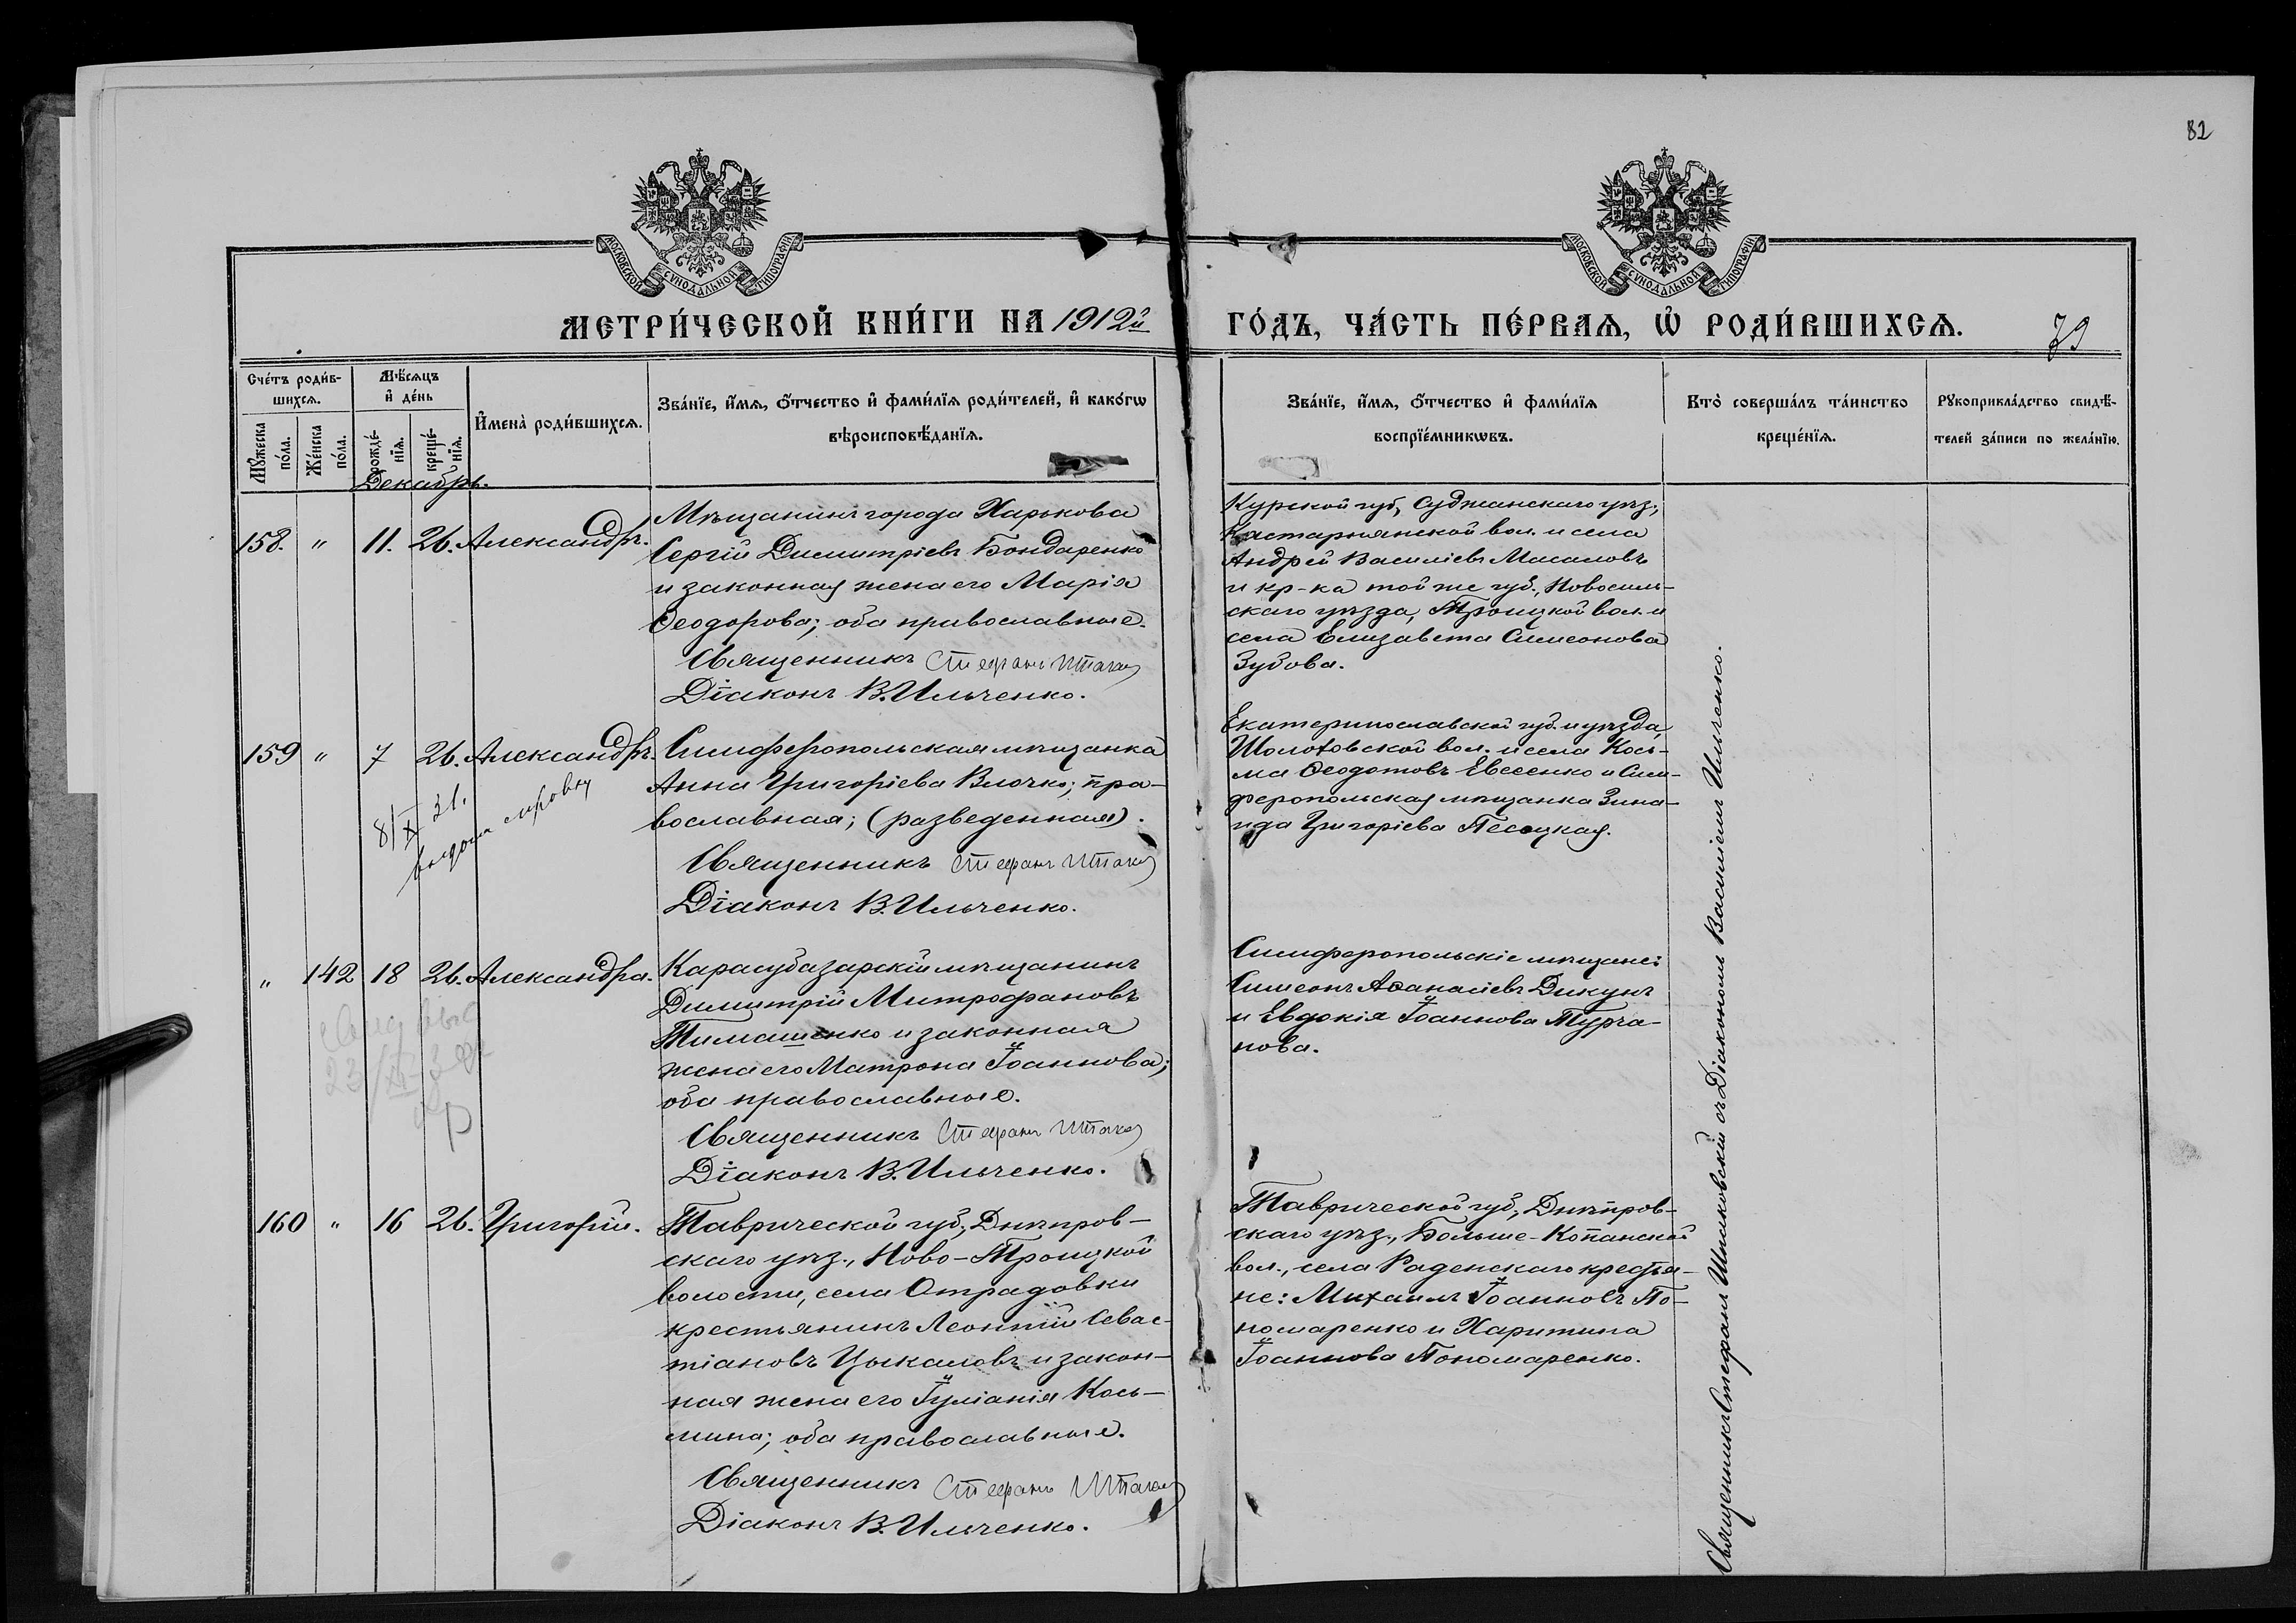 82
МОСКОВСКОЙ СѴНОДАЛЬНОЙ ТИПОГРАФІИ
МОСКОВСКОЙ СѴНОДАЛЬНОЙ ТИПОГРАФІИ
МЕТРИ́ЧЕСКОЙ КНИ́ГИ НА 1912й
ГО́ДЪ, ЧА́СТЬ ПЕ́РВАѦ, Ѡ РОДИ́ВШИХСѦ.
79
Сче́тъ роди́в-
шихсѧ.
Мꙋ́жеска
по́ла.
Же́нска
по́ла.
Мѣ́сѧцъ
и де́нь
рожде́-
нїѧ.
креще́-
нїѧ.
И҆мена̀ роди́вшихсѧ.
Зва́нїе, и҆́мѧ, ѻ҆́тчество и҆ фами́лїѧ роди́телей, и҆ како́гѡ
вѣроисповѣ́данїѧ.
Зва́нїе, и҆́мѧ, ѻ҆́тчество и҆ фами́лїѧ
воспрїе́мникѡвъ.
Кто̀ соверша́лъ та́инство
креще́нїѧ.
Рꙋкоприкла́дство свидѣ́-
телей за́писи по жела́нїю.
Декабрь.
158. " 11. 26. Александръ.
Мѣщанинъ города Харькова
Сергій Димитріевъ Бондаренко
и законная жена его Марія
Ѳеодорова; оба православные.
Священникъ Стефанъ
Діаконъ В. Ильченко.
Курской губ., Суджанскаго уѣз.,
вол. и села
Андрей Василіевъ Масаловъ
и кр-ка той же губ., Новосиль-
скаго уѣзда, Троицкой вол. и
села Елизавета Симеонова
Зубова.
159 " 7 26. Александръ.
8/X 31.
выдана
Симферопольская мѣщанка
Анна Григоріева Влочко; пра-
вославная; (разведенная).
Священникъ Стефанъ
Діаконъ В. Ильченко.
Екатеринославской губ. и уѣзда,
Шолоховской вол. и села Кось-
ма Ѳеодотовъ Евсеенко и Сим-
феропольская мѣщанка Зина-
ида Григоріева Песоцкая.
" 142 18 26. Александра.
Карасубазарскій мѣщанинъ
Димитрій Митрофановъ
Тимашенко и законная
жена его Матрона Іоаннова;
оба православные.
Священникъ Стефанъ
Діаконъ В. Ильченко.
Симферопольскіе мѣщане:
Симеонъ Аѳанасіевъ Дикунъ
и Евдокія Іоаннова Турча-
нова.
160 " 16 26. Григорій.
Таврической губ., Днѣпров-
скаго уѣз., Ново-Троицкой
волости, села Отрадовки
крестьянинъ Леонтій Севас-
тіановъ Цыкаловъ и закон-
ная жена его Іуліанія Кось-
мина; оба православные.
Священникъ Стефанъ
Діаконъ В. Ильченко.
Таврической губ., Днѣпров-
скаго уѣз., Больше-Копанской
вол., села Раденскаго крестья-
не: Михаилъ Іоанновъ По-
номаренко и Харитина
Іоаннова Пономаренко.
Священникъ Стефанъ съ Діакономъ Василіемъ Ильченко.